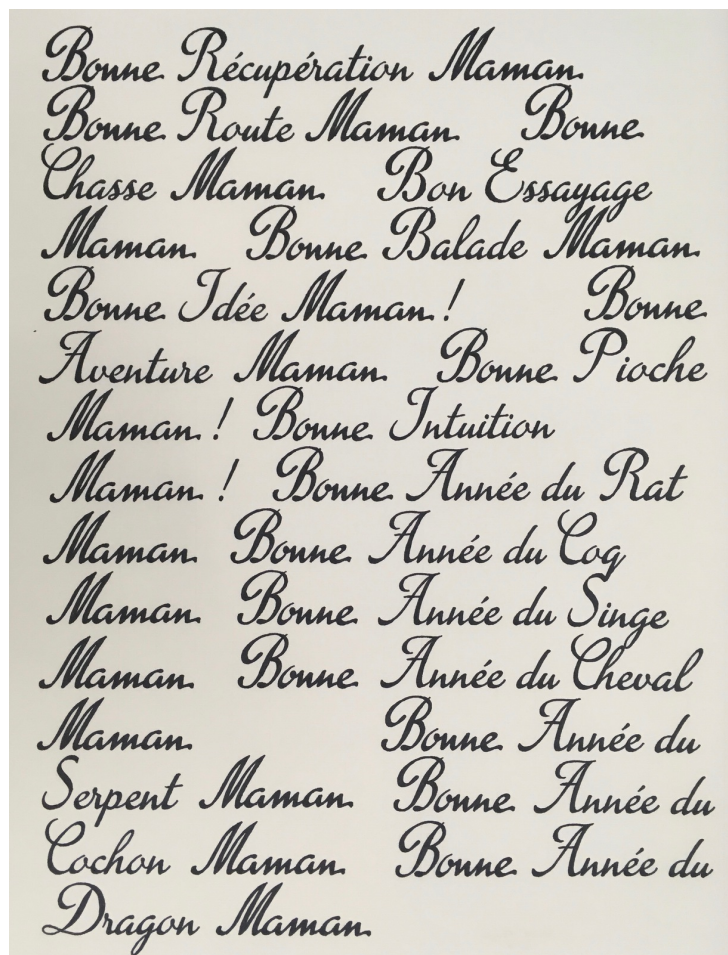 Bonne Récupération Maman.
Bonne Route Maman. Bonne
Chasse Maman. Bon Essayage
Maman. Bonne Balade Maman.
Bonne Idée Maman! Bonne
Aventure Maman. Bonne Pioche
Maman! Bonne Intuition
Maman! Bonne Année du Rat
Maman. Bonne Année du Coq
Maman. Bonne Année du Singe
Maman. Bonne Année du Cheval
Maman. Bonne Année du
Serpent Maman. Bonne Année du
Cochon Maman. Bonne Année du
Dragon Maman.